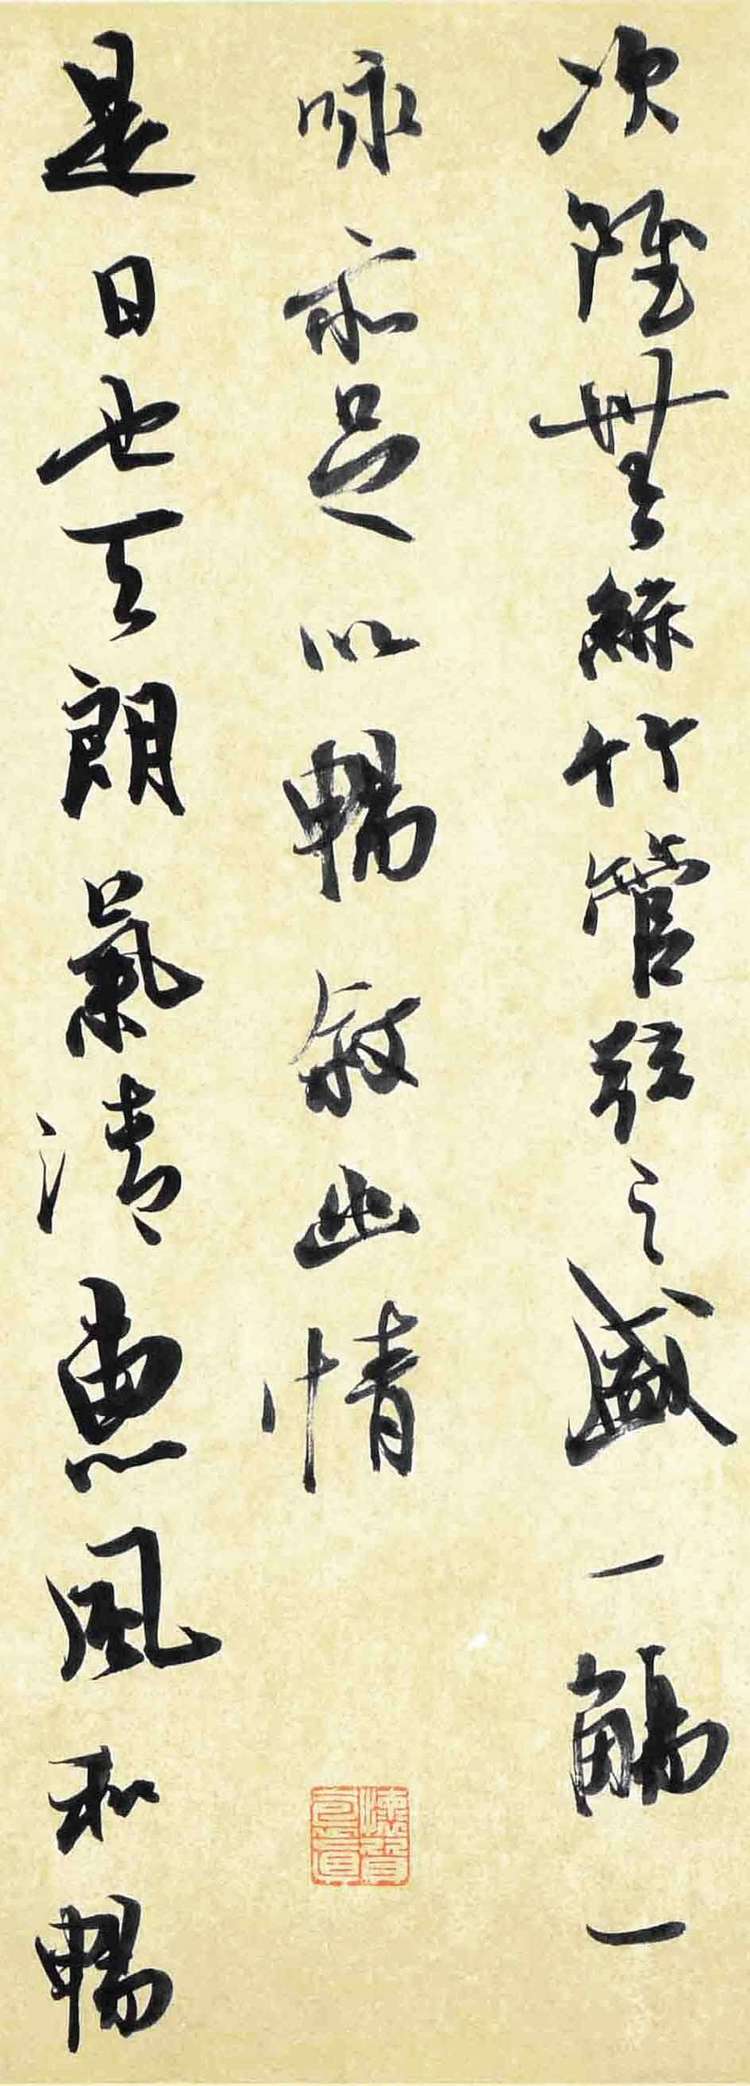 次雖無絲竹管弦之盛一觴一
咏亦足以暢敘幽情
是日也天朗氣清惠風和暢